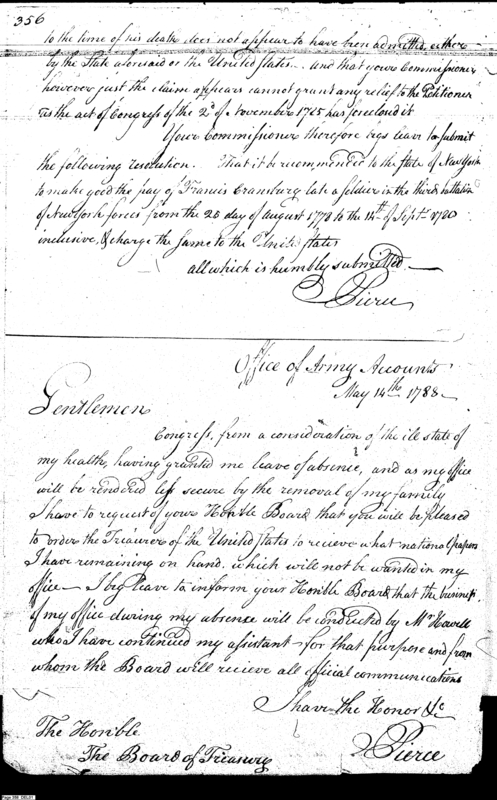 356
to the time of his death does not appear to have been admitted, either
by the State aforesaid or the United States. And that your Commissioner
however just the claim appears cannot grant any relief to the Petitioner
as the act of Congress of the 2d of November 1785 has foreclosed it
Your Commissioner therefore begs leave to submit
the following resolution. That it be recommended to the State of New York
to make good the pay of Francis Cransburg late a Soldier in the third battalion
of New York forces from the 20 day of August 1778 to the 14th of Sept. 1780
inclusive, & charge the same to the United States
all which is humbly submitted
Pierce
Office of Army Accounts
May 14th 1788
Gentlemen
Congress, from a consideration of the ill state of
my health, having granted me leave of absence, and as my office
will be rendered less secure by the removal of my family
I have to request of your Honble Board that you will be pleased
to order the Treasurer of the United States to recieve what national papers
I have remaining on hand, which will not be wanted in my
office — I beg leave to inform your Honble Board that the business
of my office during my absence will be conducted by Mr Howell
who I have continued my assistant for that purpose and from
whom the Board will recieve all official communications
I have the Honor &c
Pierce
The Honble
The Board of Treasury